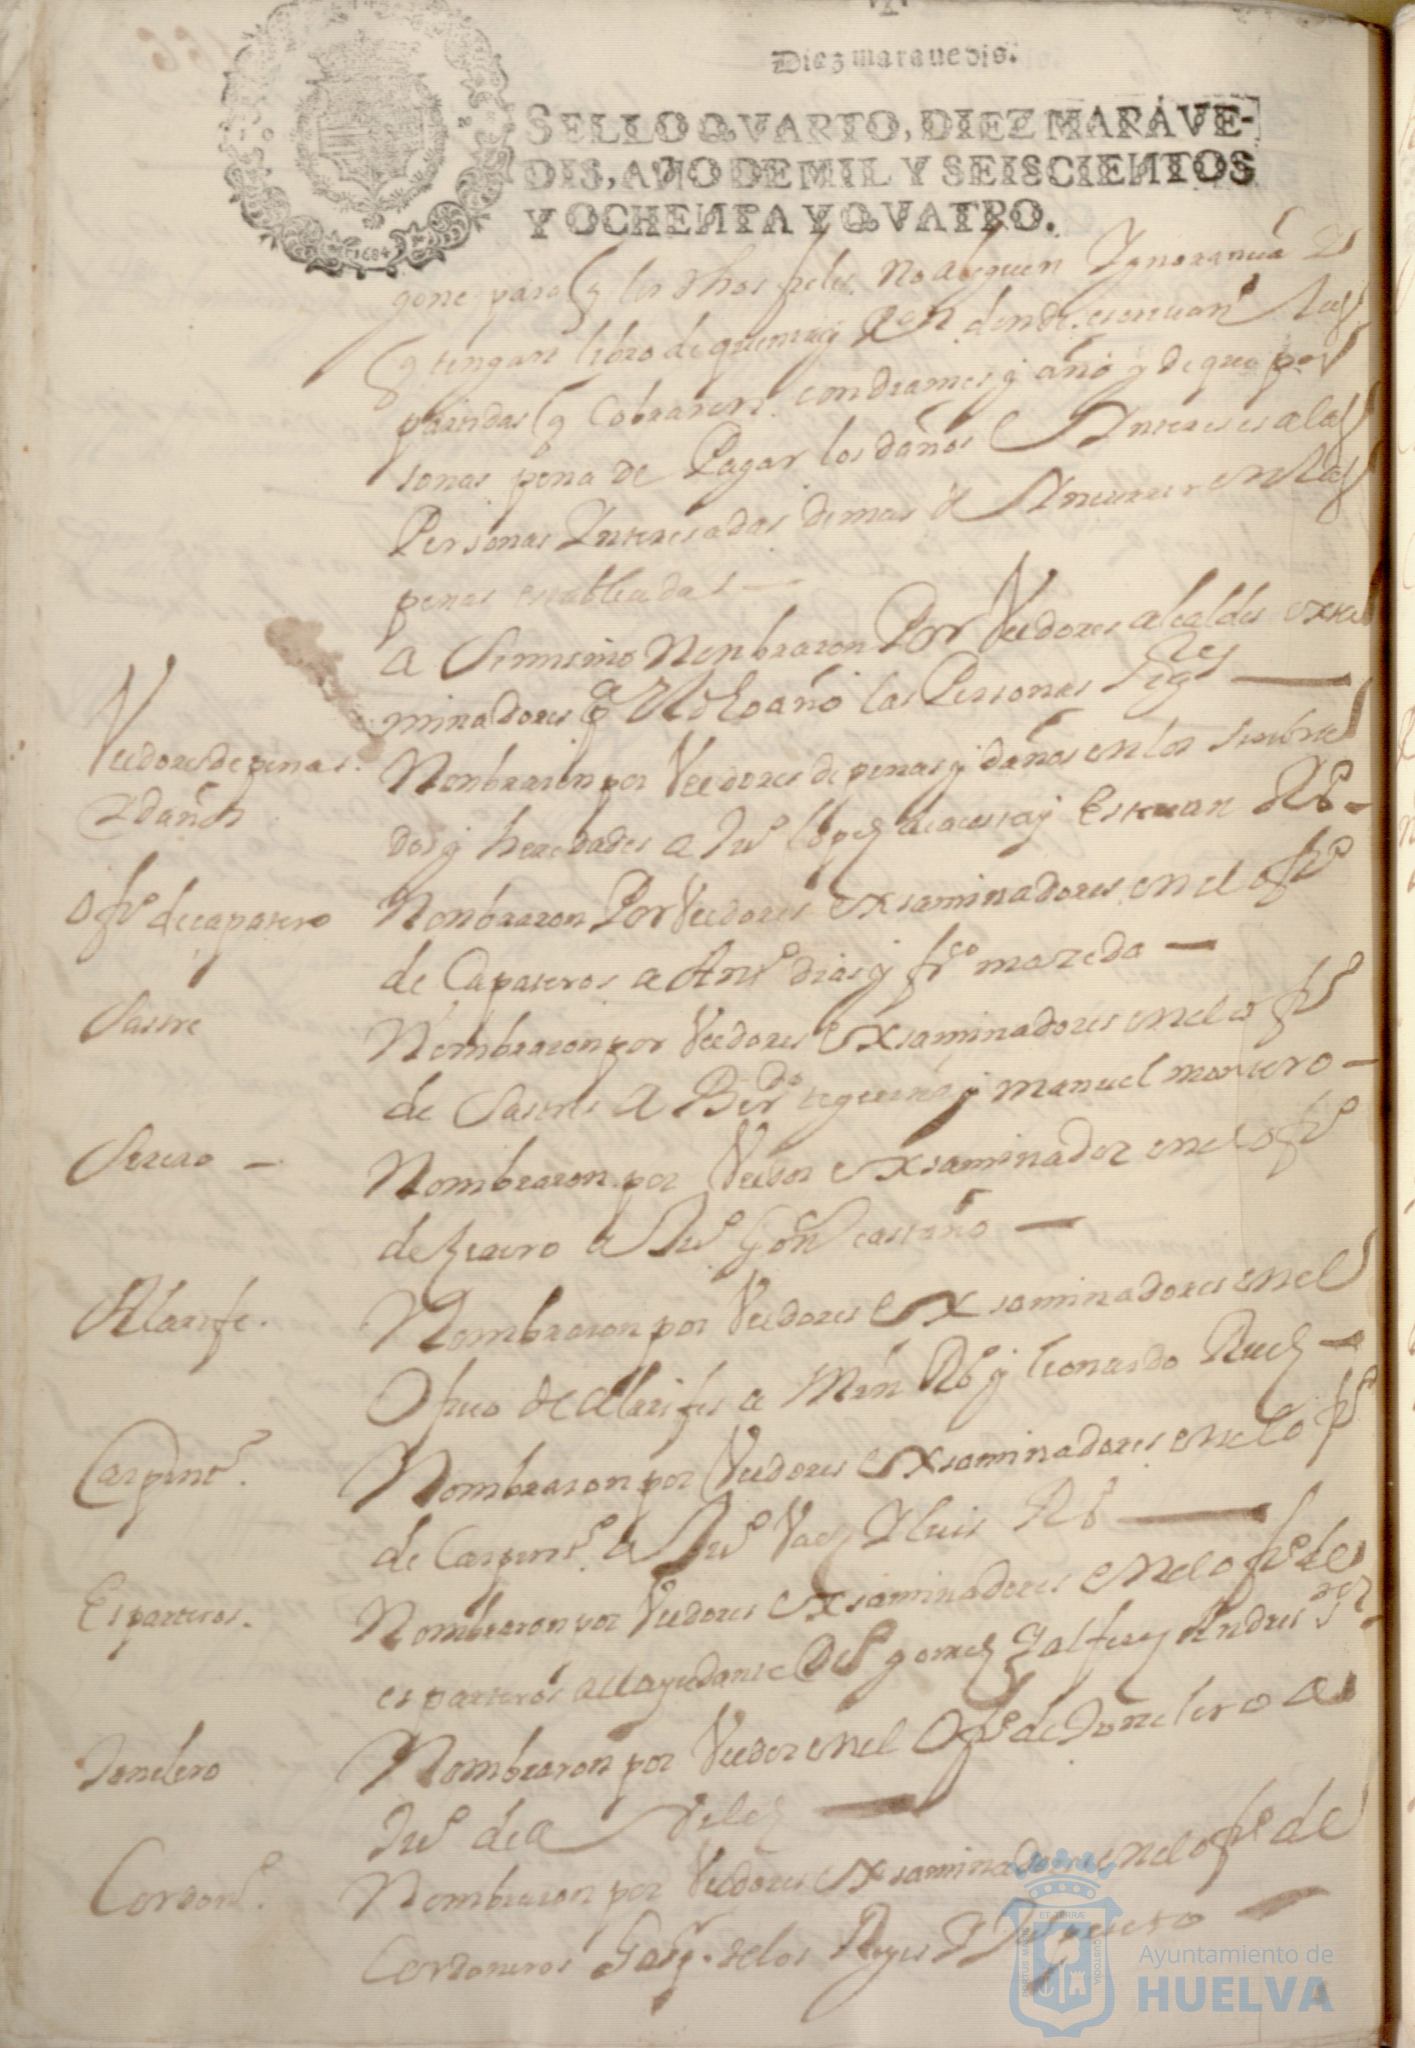 Diez maravedis.
SELLO QVARTO, DIEZ MARAVE-
DIS, AÑO DE MIL Y SEISCIENTOS
Y OCHENTA Y QVATRO.
1684
gone para q los dhos fieles no aleguen Ygnorancia
q tengan libro de quenta y Ron donde escriuan las
partidas q cobraren con dia mes y año y de que per
sonas pena de Pagar los daños E Yntereses a las
Personas Ynteresadas demas de Yncurrir en las
penas establecidas
a Simismo Nonbraron Por Veedores alcaldes exsa
minadores pa este dho año las Personas Sigtes
Veedores de penas
Y daños
Nonbraron por Veedores de penas y daños en los senbra
dos y heredades a Juo lopez de acosta y Esteuan Ro
ofio de capatero
Nonbraron Por Veedores exsaminadores en el ofio
de Capateros a Anto dias y frco mazeda
Sastre
Nombraron por Veedores Exsaminadores en el ofio
de Sastres a Berdo y manuel montero
Serero
Nombraron por Veedor exsaminador en el ofio
de Zerero a Juo Gon castaño
Alarife.
Nombraron por Veedores Exsaminadores en el
Oficio de Alarifes a Min Ro y leonardo
Carpintº.
Nombraron por Veedores Exsaminadores en el ofio
de Carpintº a Juo Vaez Y luis Ro
Esparteros.
Nombraron por Veedores Exsaminadores en el ofio de
esparteros al ayudante gomez y Andres
Tonelero
Nombraron por Veedor en el Ofio de Tonelero a
Juo de a Velez
Cordonº.
Nombraron por Veedores exsaminadores en el ofio de
Cordoneros Gasp. de los Reyes Y Juo
ET TERRÆ
PORTUS MARIS
CUSTODIA
Ayuntamiento de
HUELVA